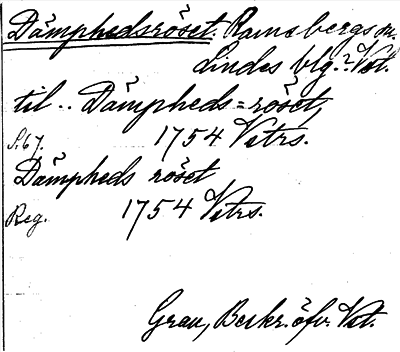 Dämphedsröset. Ramsbergs sn.
Lindes blg.? Vstl.
til .. Dämpheds=röset,
S.67. 1754 Vetrs.
Dämpheds röset
Reg. 1754 Vetrs.
Grau, Beskr. öfv. Vstl.